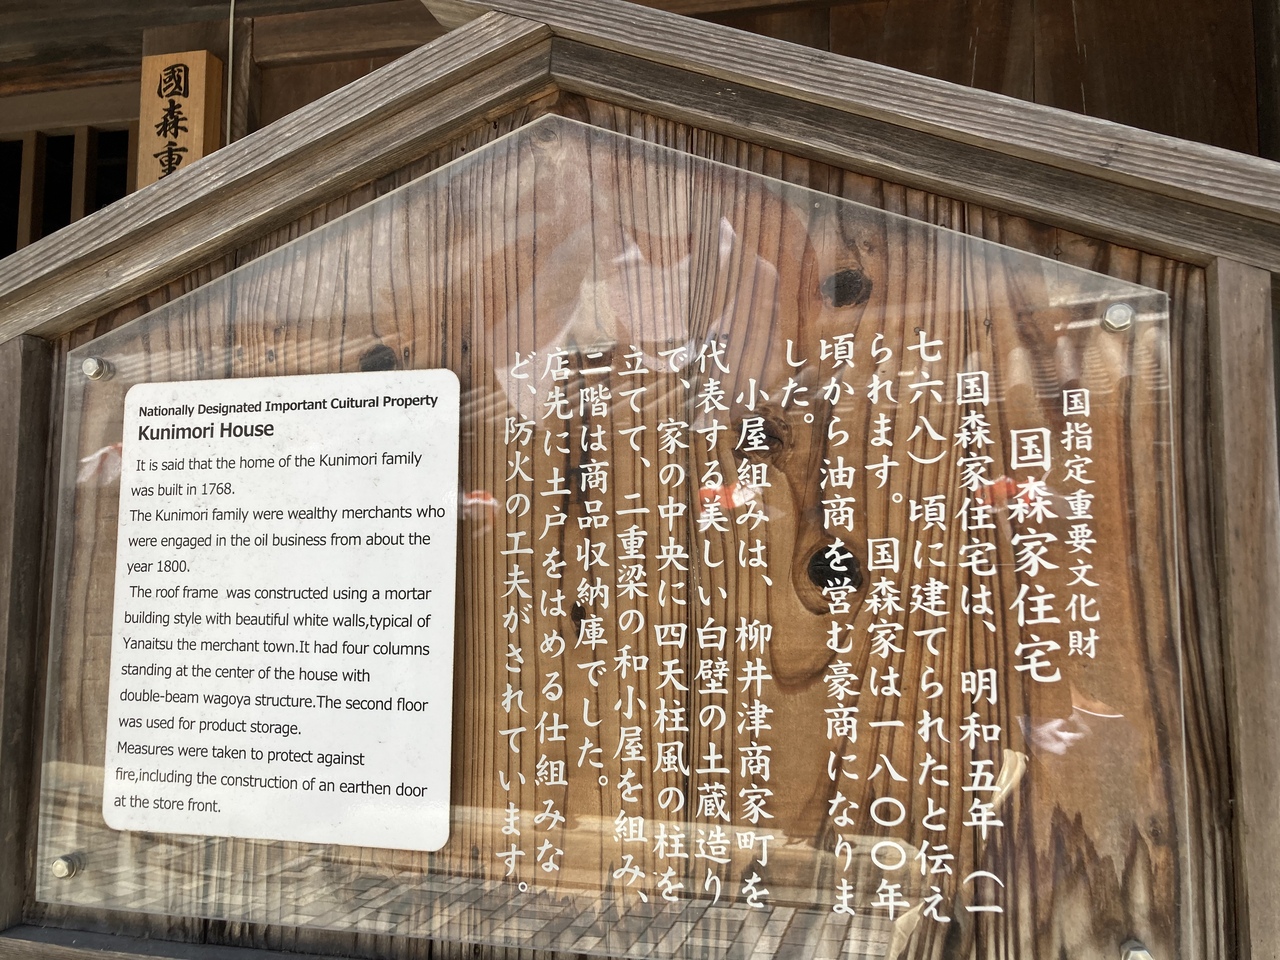 國森重
国指定重要文化財
国森家住宅
国森家住宅は、明和五年（一
七六八）頃に建てられたと伝え
られます。国森家は一八〇〇年
頃から油商を営む豪商になりま
した。
小屋組みは、柳井津商家町を
代表する美しい白壁の土蔵造り
で、家の中央に四天柱風の柱を
立てて、二重梁の和小屋を組み、
二階は商品収納庫でした。
店先に土戸をはめる仕組みな
ど、防火の工夫がされています。
Nationally Designated Important Cultural Property
Kunimori House
It is said that the home of the Kunimori family
was built in 1768.
The Kunimori family were wealthy merchants who
were engaged in the oil business from about the
year 1800.
The roof frame was constructed using a mortar
building style with beautiful white walls,typical of
Yanaitsu the merchant town.It had four columns
standing at the center of the house with
double-beam wagoya structure.The second floor
was used for product storage.
Measures were taken to protect against
fire,including the construction of an earthen door
at the store front.